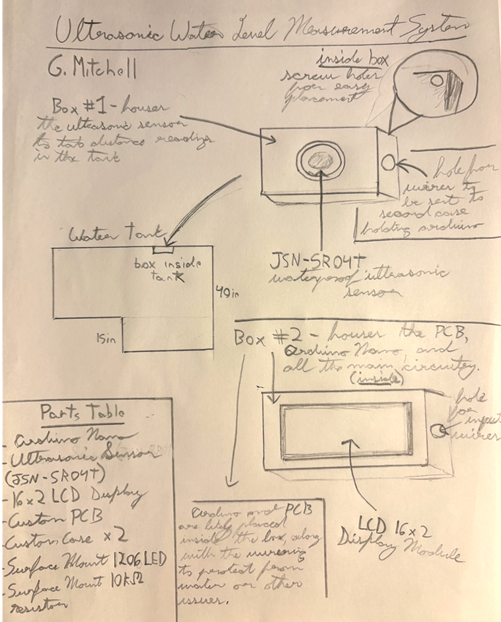 Ultrasonic Water Level Measurement System
G. Mitchell
inside box
screw holes
for easy
placement
Box #1 - houses
the ultrasonic sensor
to take distance readings
in the tank
hole for
wires to
be sent to
second case
holding arduino
Water Tank
box inside
tank
40in
15in
JSN-SR04T
waterproof ultrasonic
sensor
Box #2 - houses the PCB,
Arduino Nano, and
all the main circuitry.
(inside)
hole
for
input
wires
Parts Table
- Arduino Nano
- Ultrasonic Sensor
(JSN-SR04T)
- 16x2 LCD Display
- Custom PCB
- Custom Case x2
- Surface Mount 1206 LED
- Surface Mount 10kΩ
resistor
Arduino and PCB
are likely placed
inside the box, along
with the wiring
to protect from
water or other
issues.
LCD 16x2
Display Module